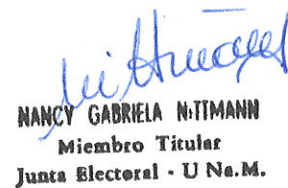 Nittmann
NANCY GABRIELA NITTMANN
Miembro Titular
Junta Electoral - U Na.M.